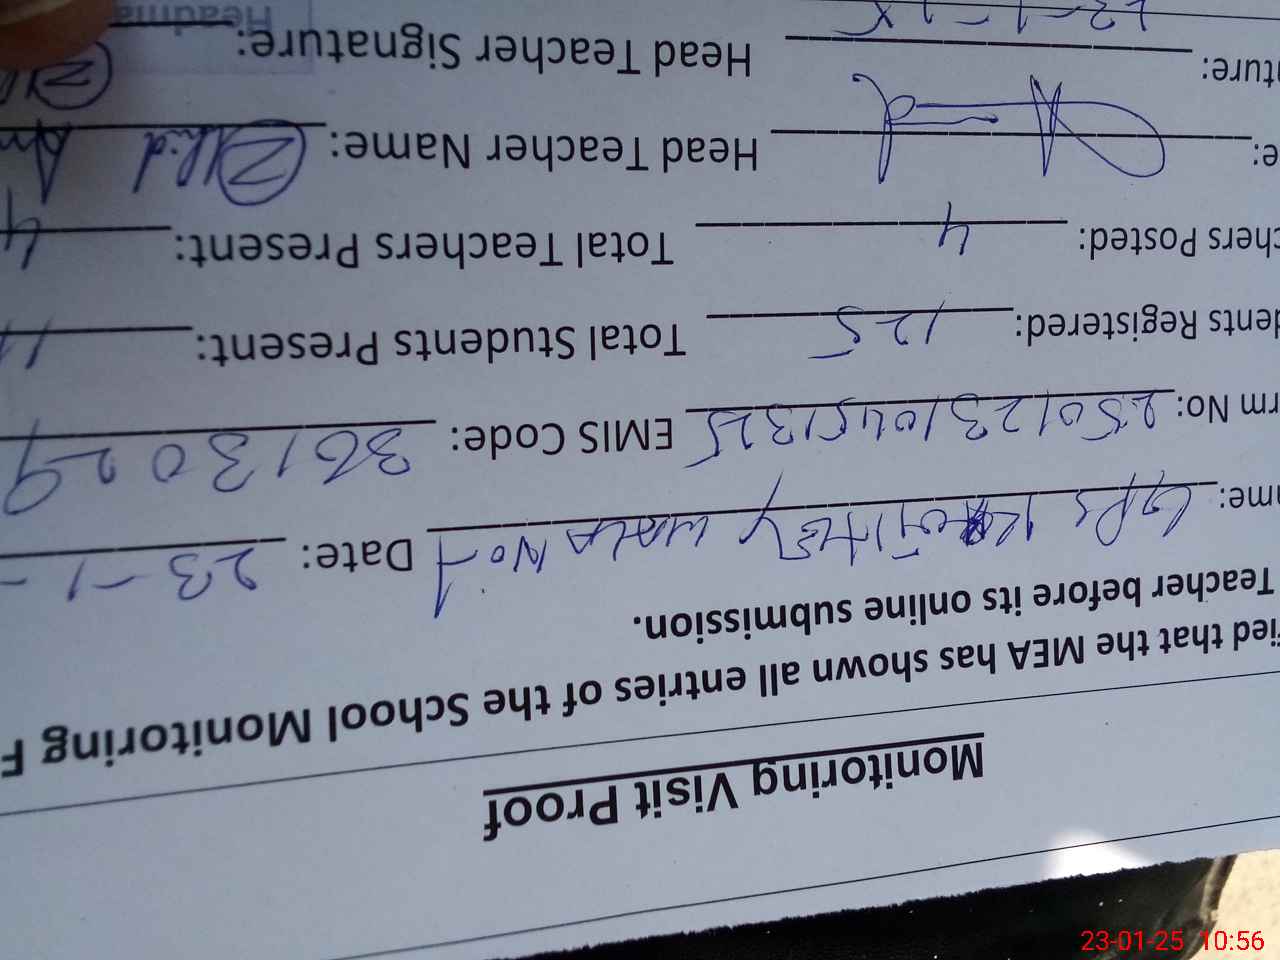 Monitoring Visit Proof
ied that the MEA has shown all entries of the School Monitoring F
Teacher before its online submission.
me: GPS No-1 Date: 23-1-
rm No: 25012310451325 EMIS Code: 36130029
dents Registered: 125 Total Students Present: 11
chers Posted: 4 Total Teachers Present: 4
e: Head Teacher Name:
ture: Head Teacher Signature:
23-01-25 10:56